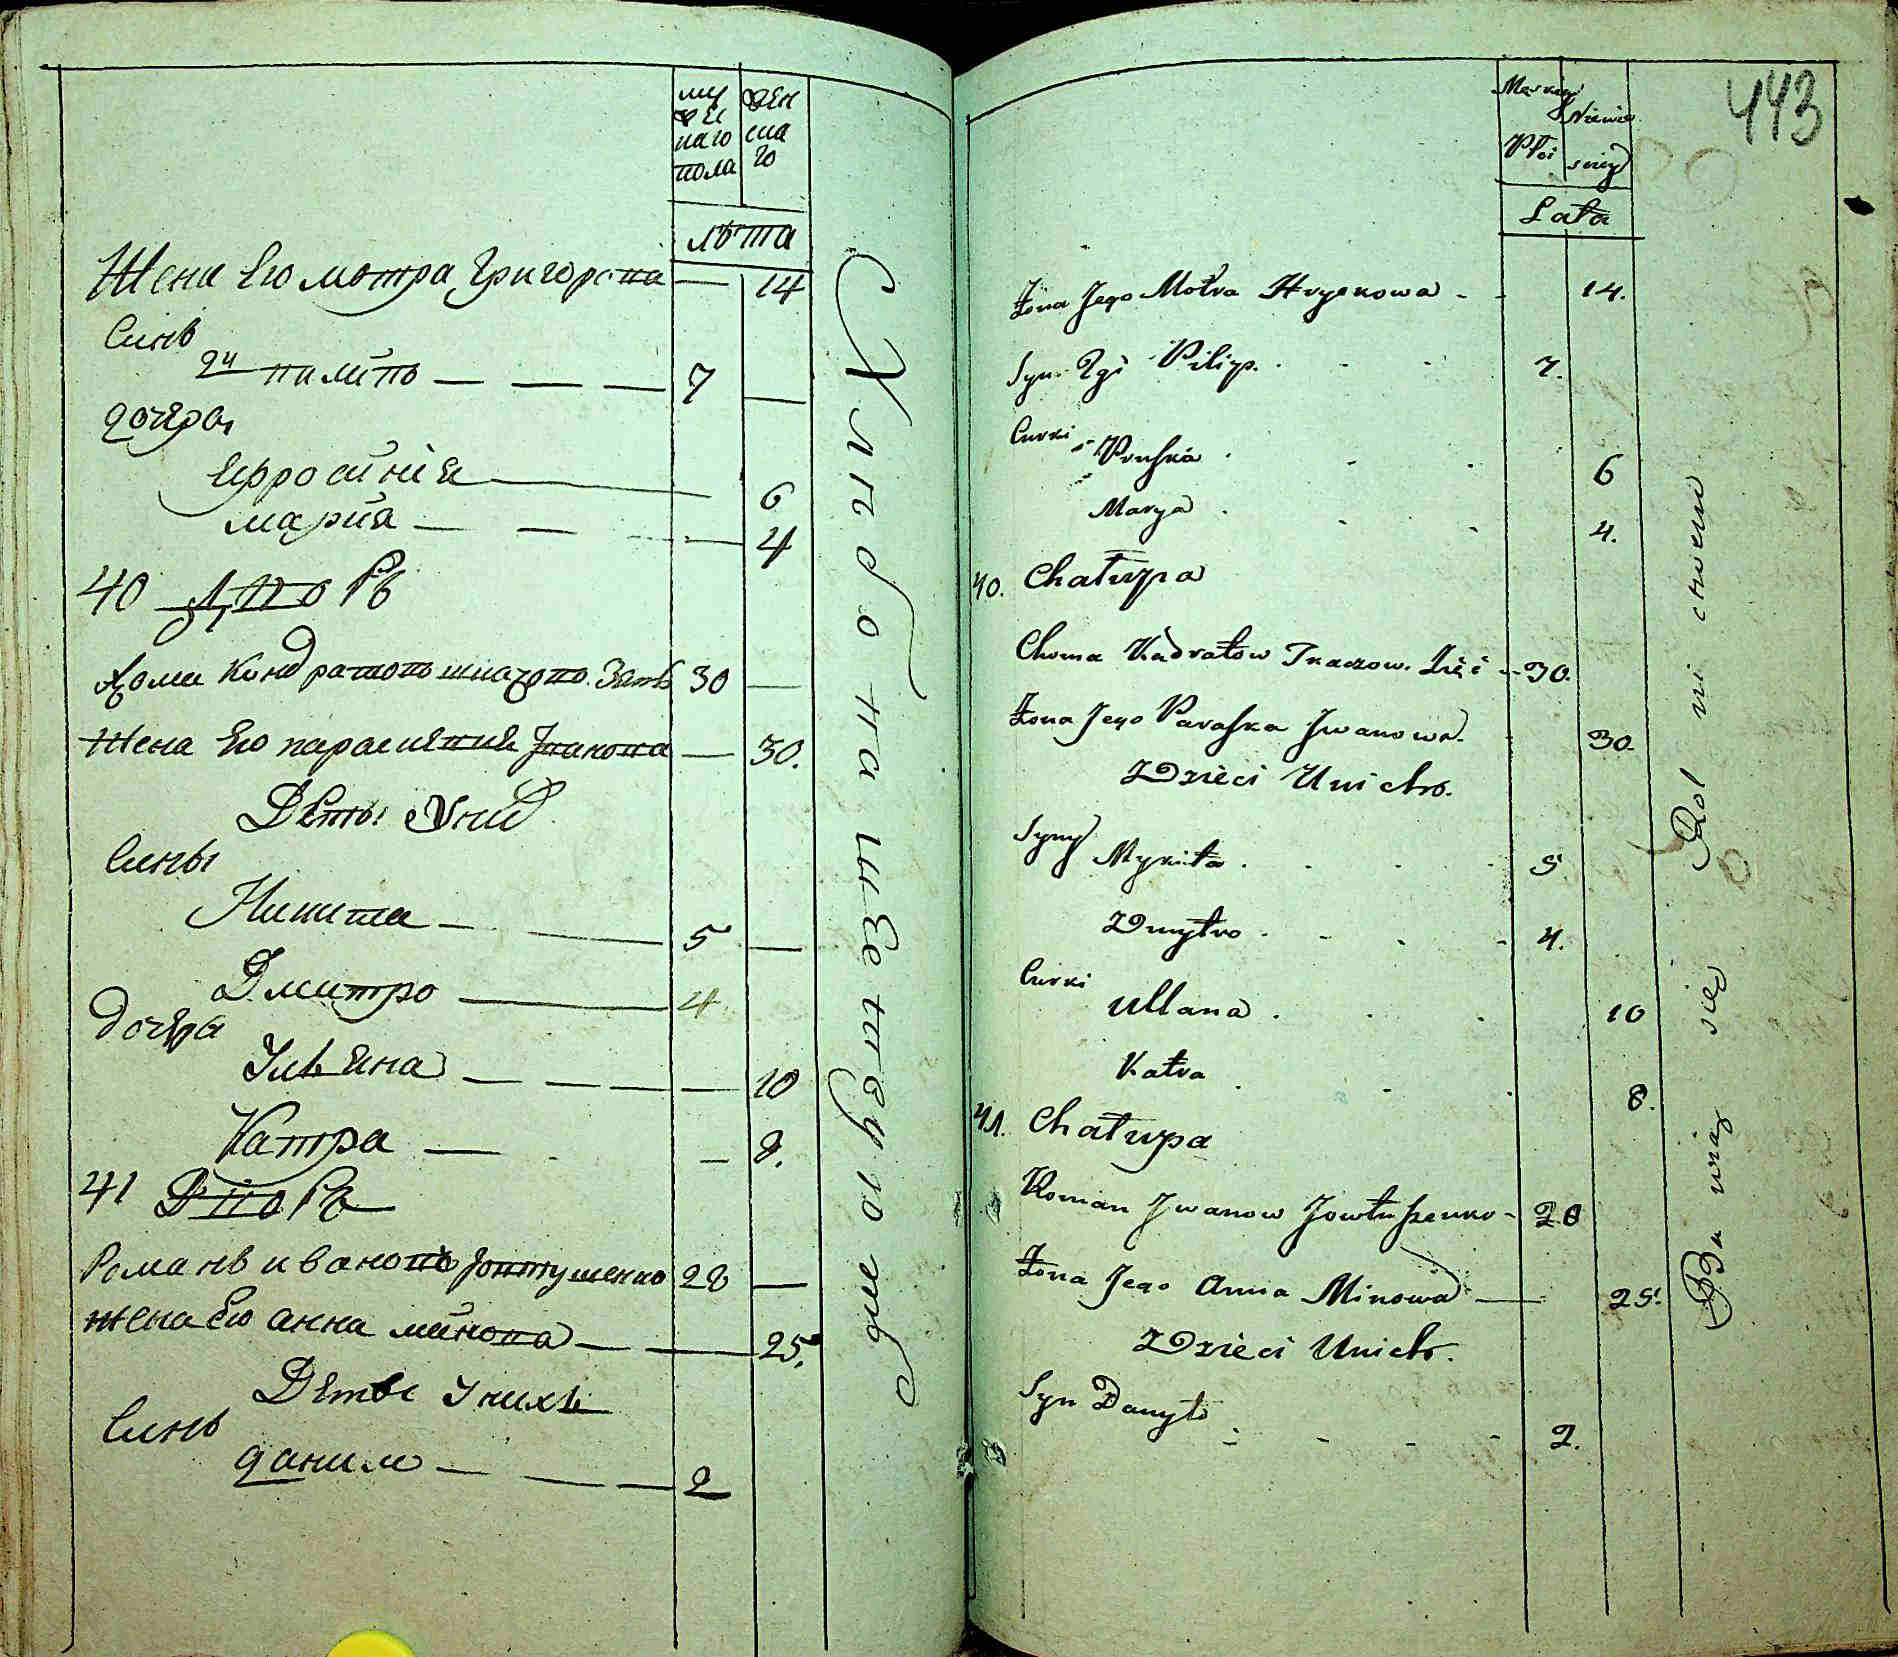 му жен
жес ска
наго го
пола
лѣта
Жена Его мотра григорова — 14
Синъ
Пилипъ — — — 7 —
дочера
Ефросинiя — 6
мария — — — 4
40 Дворъ
Хома Кондратовъ ткачовъ Зять 30 —
Жена Его параскевия Jванова — 30.
Дети у них
Сины
Никита — — 5 —
Дмитро — 4
дочера
Ульяна — — — — 10
Катра — — 8.
41 Дворъ
Романъ ивановъ Jовтушенко 28 —
жена Его анна минова — — 25.
Дети у нихъ
Синъ
данило — — — 2
Хлебопашествуют
443
Męskiej Niewie
Płci sciej
Lata
Żona Jego Motra Hryhorowa - - 14.
Syn Jgo Pilip. . . . 7.
Curki
Pruska . . . 6
Marya . . . 4.
40. Chałupa
Choma Kądratow Tkaczow Zięć - 30.
Żona Jego Paraska Jwanowa. - 30.
Dzieci Unich.
Syny
Mykita . . . . 5.
Dmytro . . . - 4.
Curki
Ullana . . . 10
Katra . . . 8.
41. Chałupa
Roman Jwanow Jowtuszenko - 28
Żona Jego Anna Minowa — 25.
Dzieci Unich.
Syn Danyło
- - - - 2.
Rol ni ctwem
Ba wią się